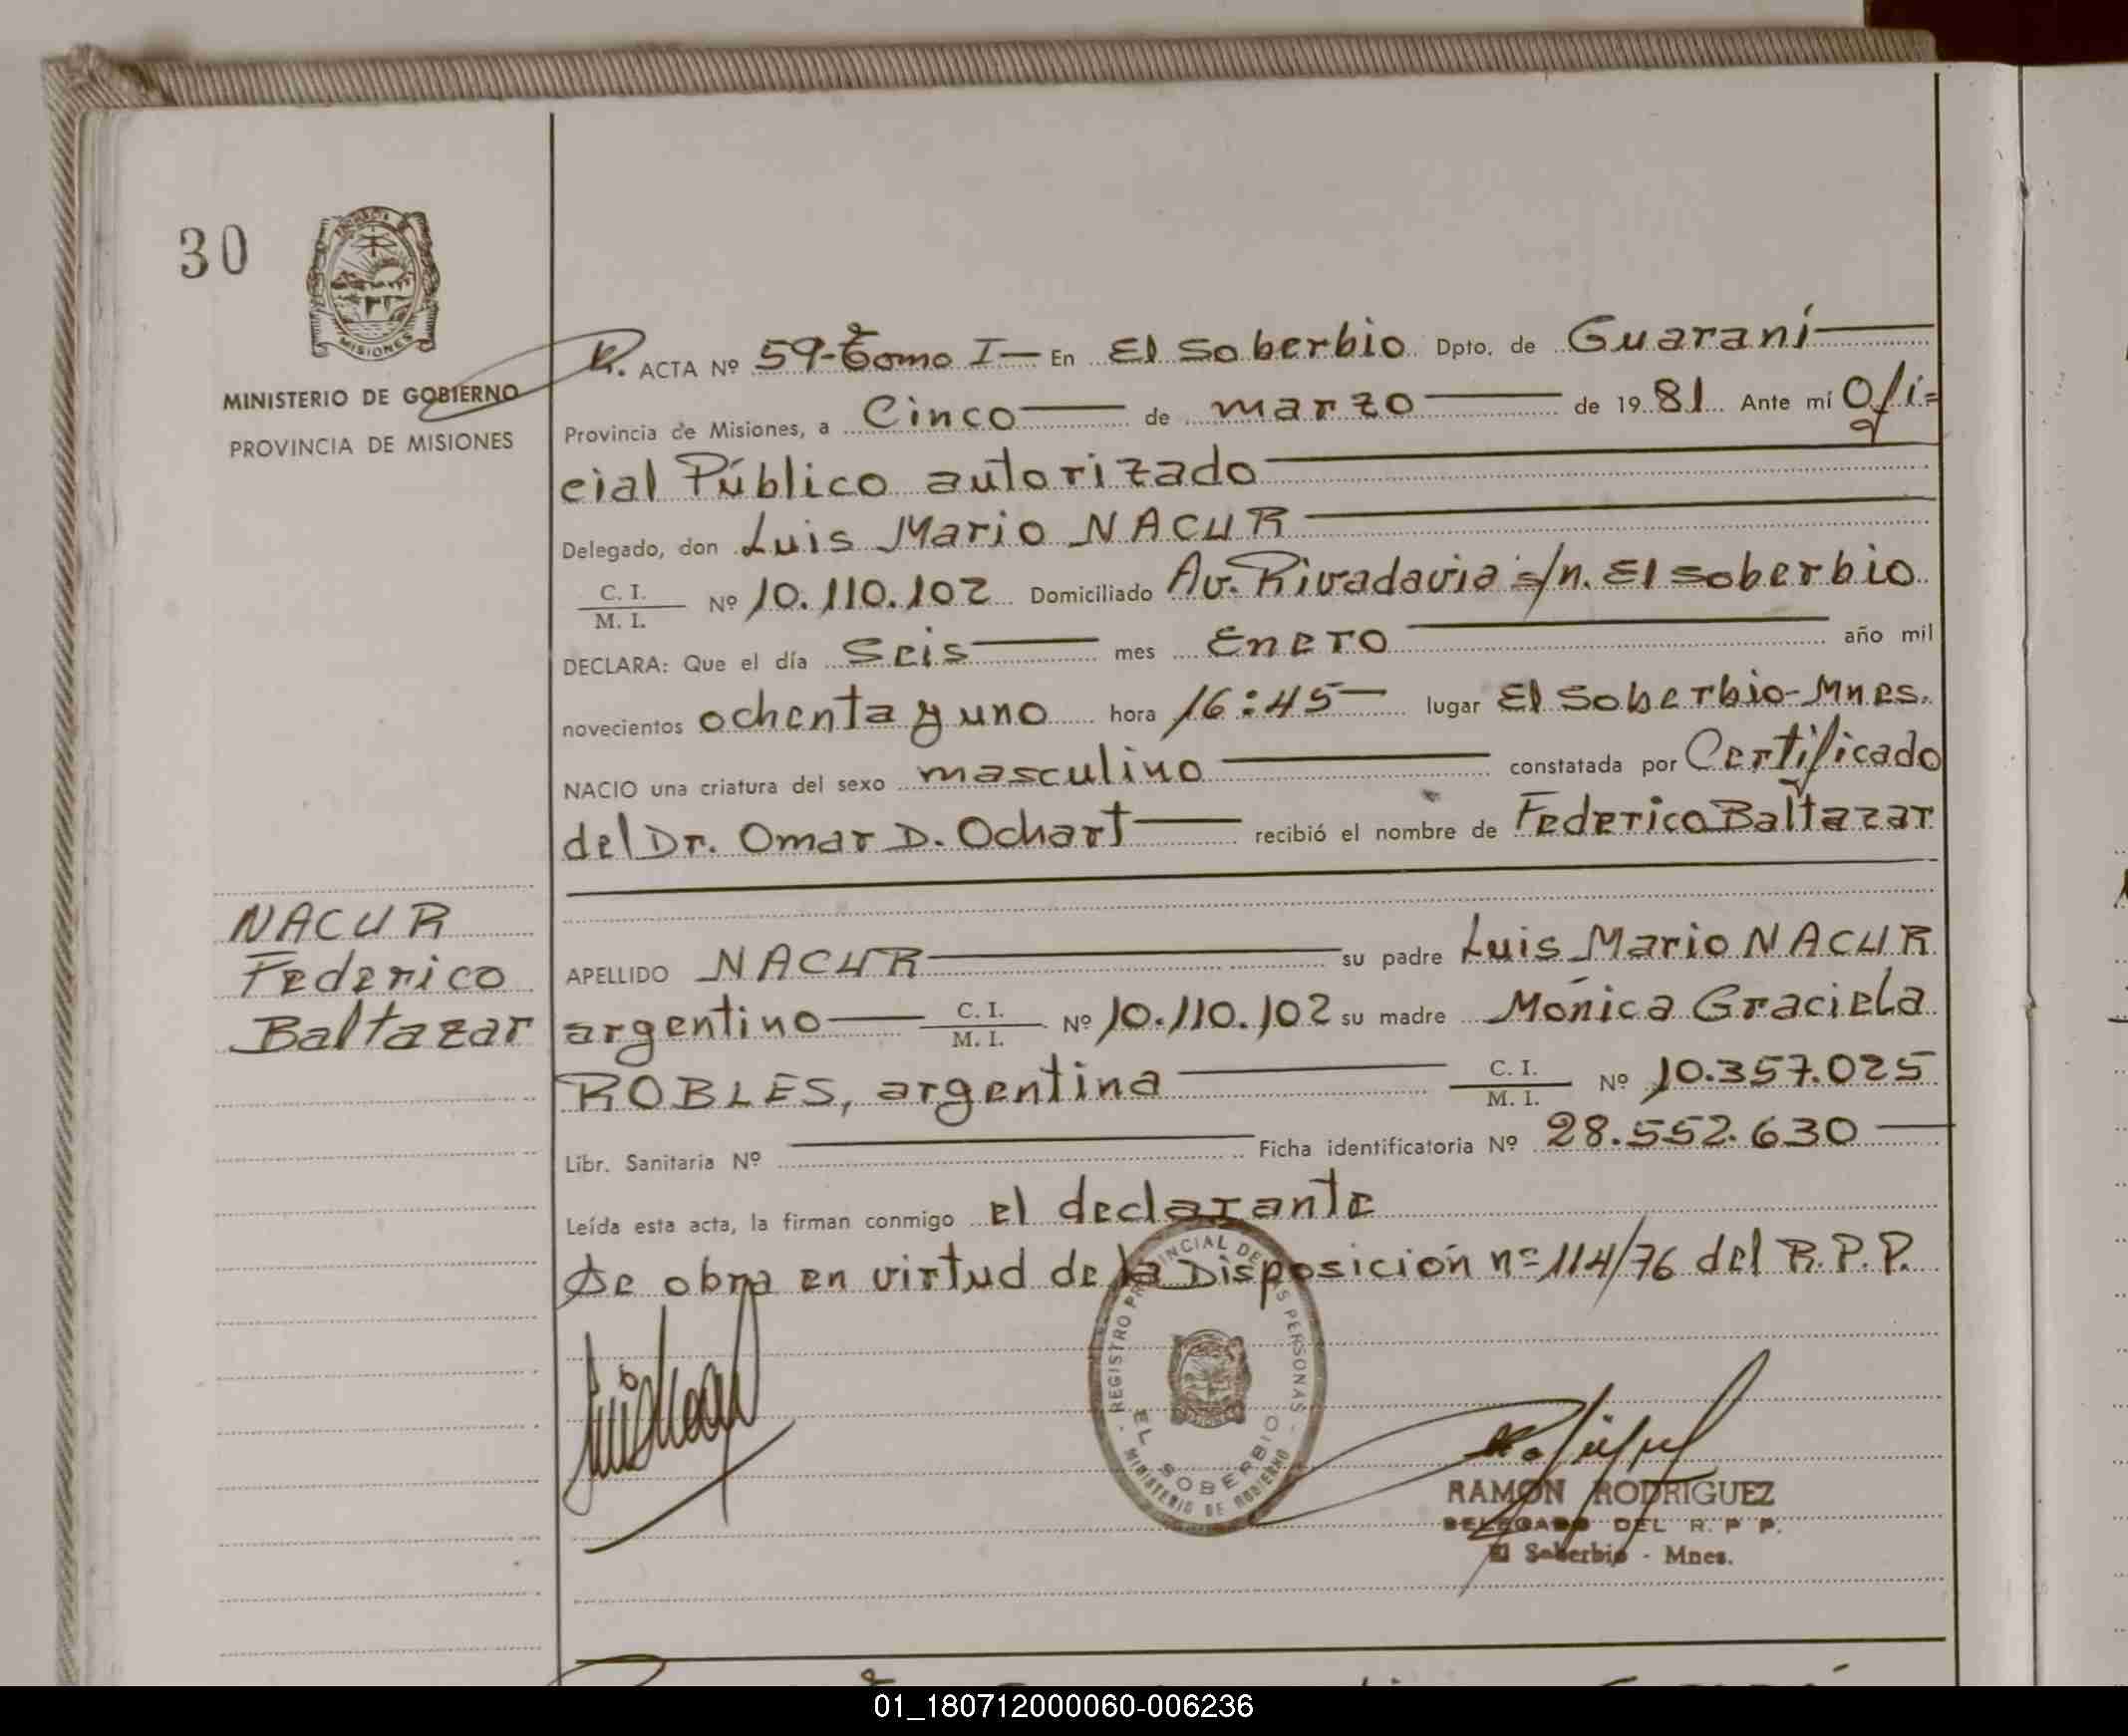 30
MISIONES
MINISTERIO DE GOBIERNO
PROVINCIA DE MISIONES
R. ACTA Nº 59-Tomo I- En El Soberbio Dpto. de Guaraní
Provincia de Misiones, a Cinco de marzo de 1981 Ante mí Ofi=
cial Público autorizado
Delegado, don Luis Mario NACUR
C. I.
M. I. Nº 10.110.102 Domiciliado Av. Rivadavia s/n. El soberbio
DECLARA: Que el día Seis mes Enero año mil
novecientos ochenta y uno hora 16:45 lugar El Soberbio-Mnes.
NACIO una criatura del sexo masculino constatada por Certificado
del Dr. Omar D. Ochart recibió el nombre de Federico Baltazar
NACUR
Federico
Baltazar
APELLIDO NACUR su padre Luis Mario NACUR
argentino C. I.
M. I. Nº 10.110.102 su madre Mónica Graciela
ROBLES, argentina C. I.
M. I. Nº 10.357.025
Libr. Sanitaria Nº Ficha identificatoria Nº 28.552.630
Leída esta acta, la firman conmigo el declarante
Se obra en virtud de la Disposición nº 114/76 del R.P.P.
REGISTRO PROVINCIAL DE LAS PERSONAS
EL SOBERBIO
MINISTERIO DE GOBIERNO
RAMON RODRIGUEZ
DELEGADO DEL R. P. P.
El Soberbio - Mnes.
01_180712000060-006236